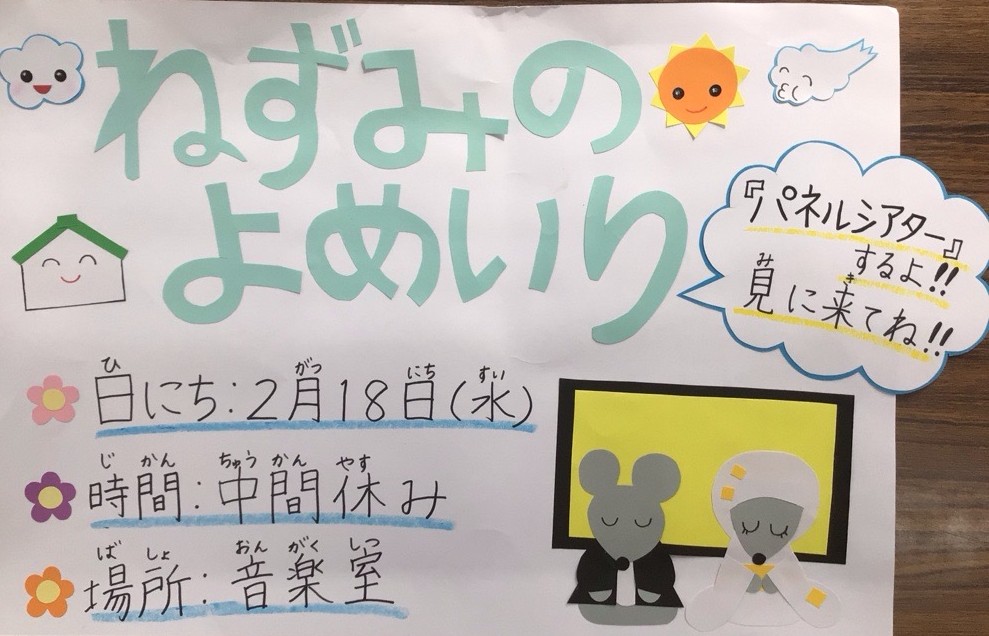 ねずみの
よめいり
『パネルシアター』
するよ!!
見に来てね!!
日にち:2月18日(水)
時間:中間休み
場所:音楽室